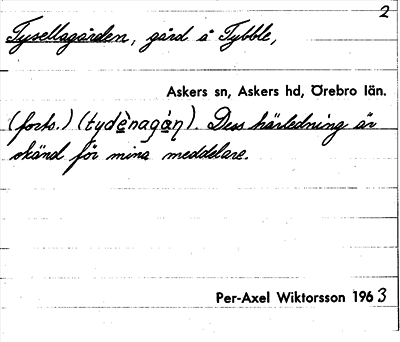 2
Tysellagården, gård å Tybble,
Askers sn, Askers hd, Örebro län.
(forts.) (tydènagàņ). Dess härledning är
okänd för mina meddelare.
Per-Axel Wiktorsson 1963